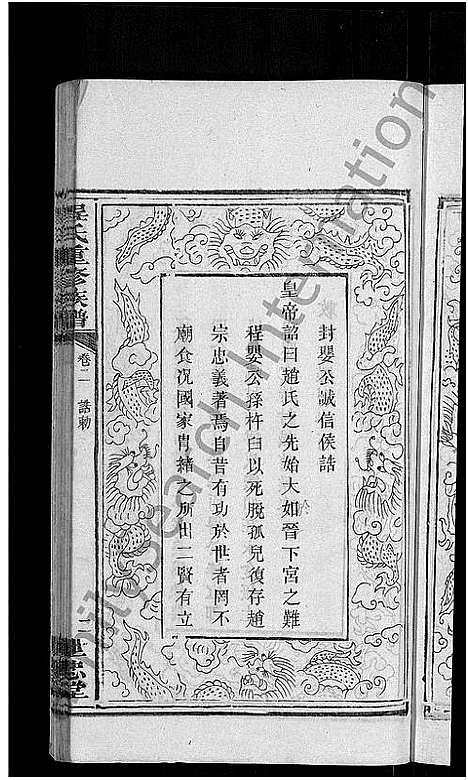 封嬰公誠信侯誥
皇帝詔曰趙氏之先始大如晉下宮之難
程嬰公孫杵臼以死脫孤兒復存趙
宗忠義著焉自昔有功於世者罔不
廟食况國家胄緒之所出二賢有立
程氏重修族譜
卷二
誥勅